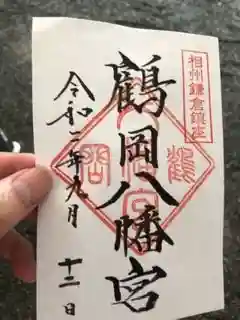 相州鎌倉鎮座
鶴岡八幡宮
令和二年九月
十二日